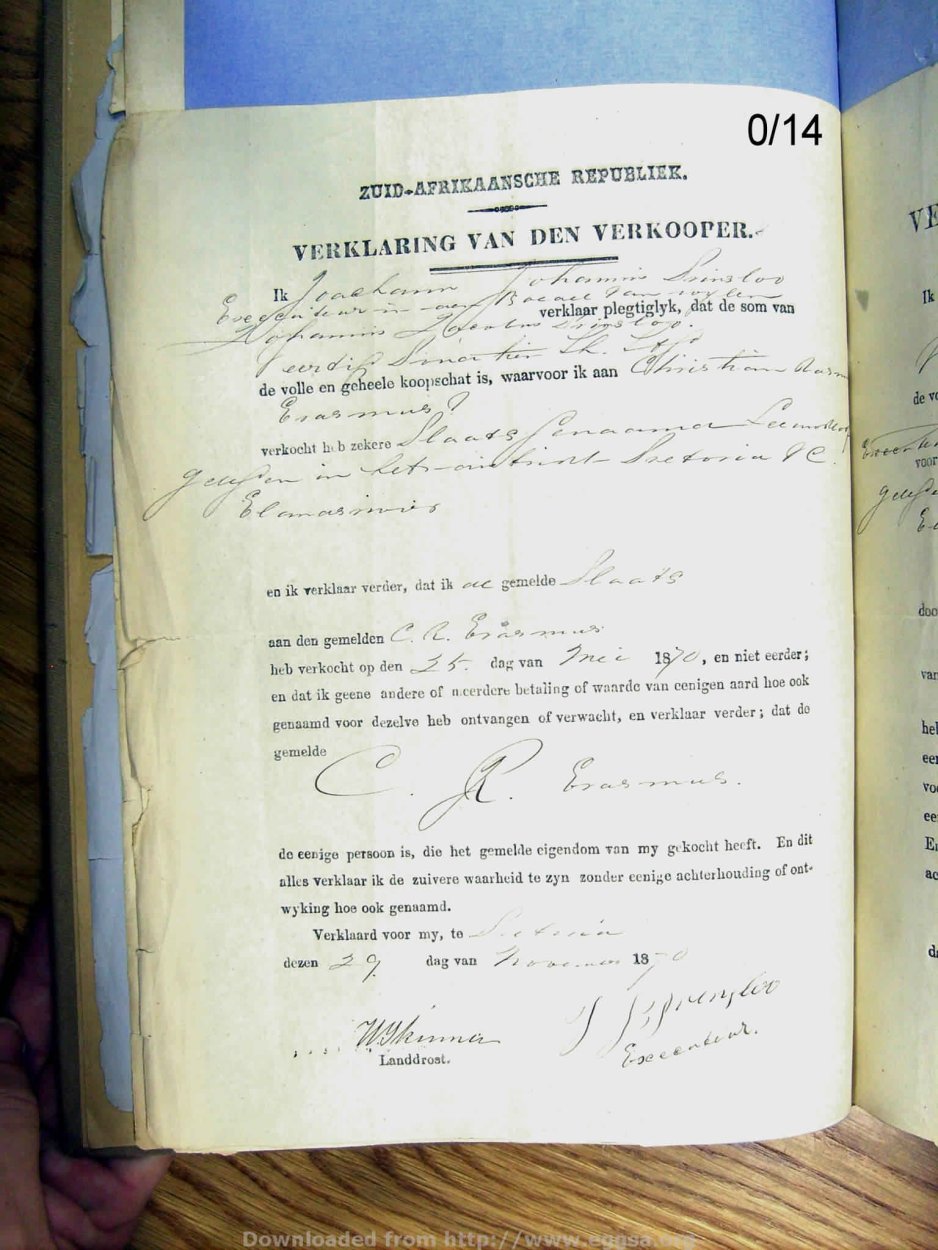 0/14
ZUID-AFRIKAANSCHE REPUBLIEK.
VERKLARING VAN DEN VERKOOPER.
Ik Joachem Johannis Prinsloo
Executeur in den Boedel van wylen
verklaar plegtiglyk, dat de som van
Johannis Jacobus Prinsloo.
de volle en geheele koopschat is, waarvoor ik aan Christiaan Rasm
Erasmus
verkocht heb zekere Plaats genaamd
gelegen in het district Pretoria
en ik verklaar verder, dat ik de gemelde Plaats
aan den gemelden C. R. Erasmus
heb verkocht op den 25. dag van Mei 1870, en niet eerder;
en dat ik geene andere of meerdere betaling of waarde van eenigen aard hoe ook
genaamd voor dezelve heb ontvangen of verwacht, en verklaar verder; dat de
gemelde
C. R. Erasmus.
de eenige persoon is, die het gemelde eigendom van my gekocht heeft. En dit
alles verklaar ik de zuivere waarheid te zyn zonder eenige achterhouding of ont-
wyking hoe ook genaamd.
Verklaard voor my, te Pretoria
dezen 29 dag van November 1870
J J Prinsloo
W Skinner
Executeur.
Landdrost.
VE
Ik
de vo
voor
doo
van
hel
een
voo
ee
En
ac
d
Downloaded from http://www.eggsa.org